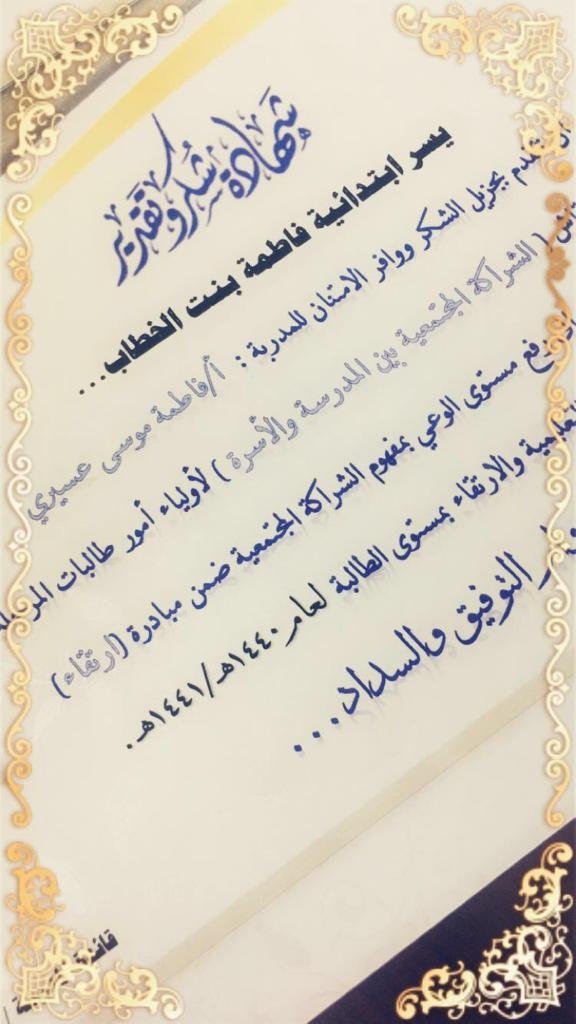 شهادة شكر وتقدير
يسر ابتدائية فاطمة بنت الخطاب...
بجزيل الشكر ووافر الامتنان للمدربة : أ/فاطمة موسى عسيري
( الشراكة المجتمعية بين المدرسة والأسرة ) لأولياء أمور طالبات
رفع مستوى الوعي بمفهوم الشراكة المجتمعية ضمن مبادرة (ارتقاء)
والارتقاء بمستوى الطالبة لعام ١٤٤٠هـ/١٤٤١هـ.
التوفيق والسداد...